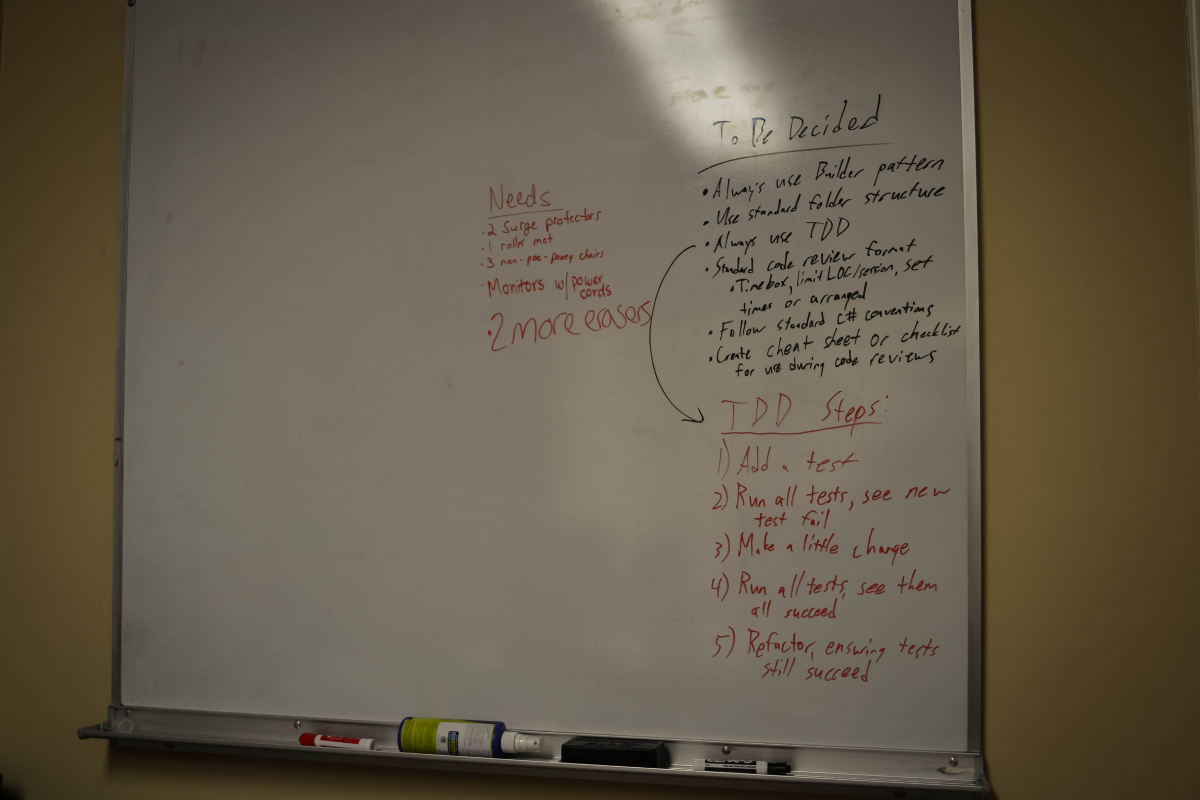 Needs
• 2 Surge protectors
• 1 roller mat
• 3 non-poo-pooey chairs
• Monitors w/power
cords
• 2 more erasers
To Be Decided
• Always use Builder pattern
• Use standard folder structure
• Always use TDD
• Standard code review format
• Timebox, limit LOC/session, set
times or arranged
• Follow standard C# conventions
• Create cheat sheet or checklist
for use during code reviews
TDD Steps:
1) Add a test
2) Run all tests, see new
test fail
3) Make a little change
4) Run all tests, see them
all succeed
5) Refactor, ensuring tests
still succeed